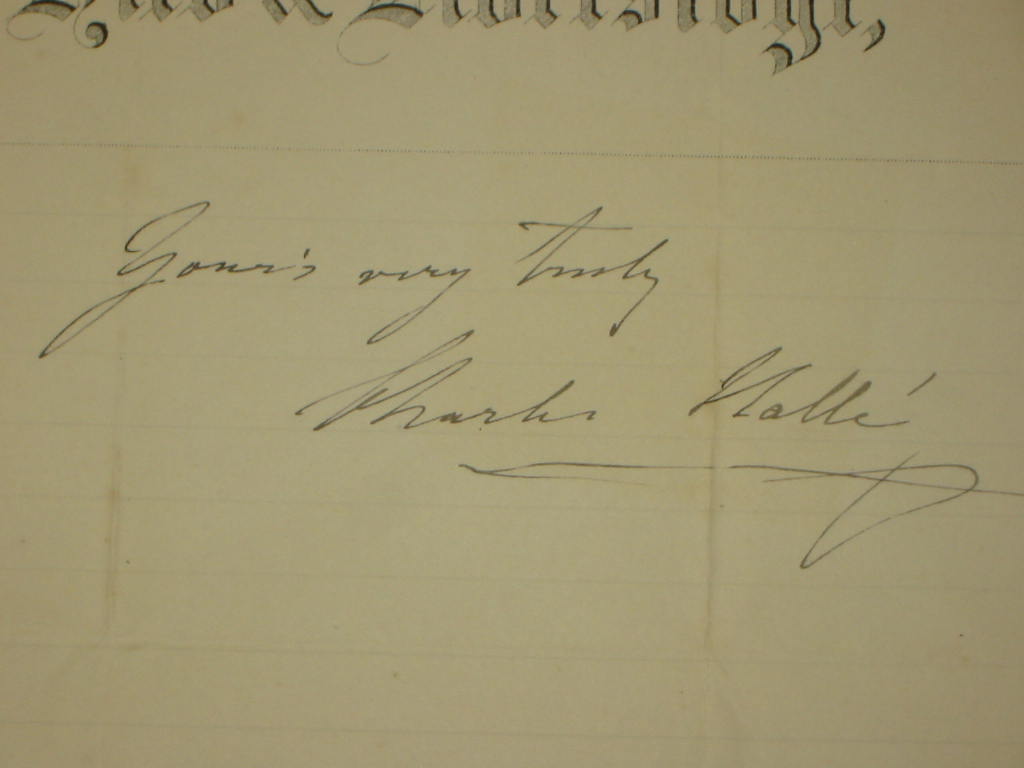 Your's very truly
Charles Hallé